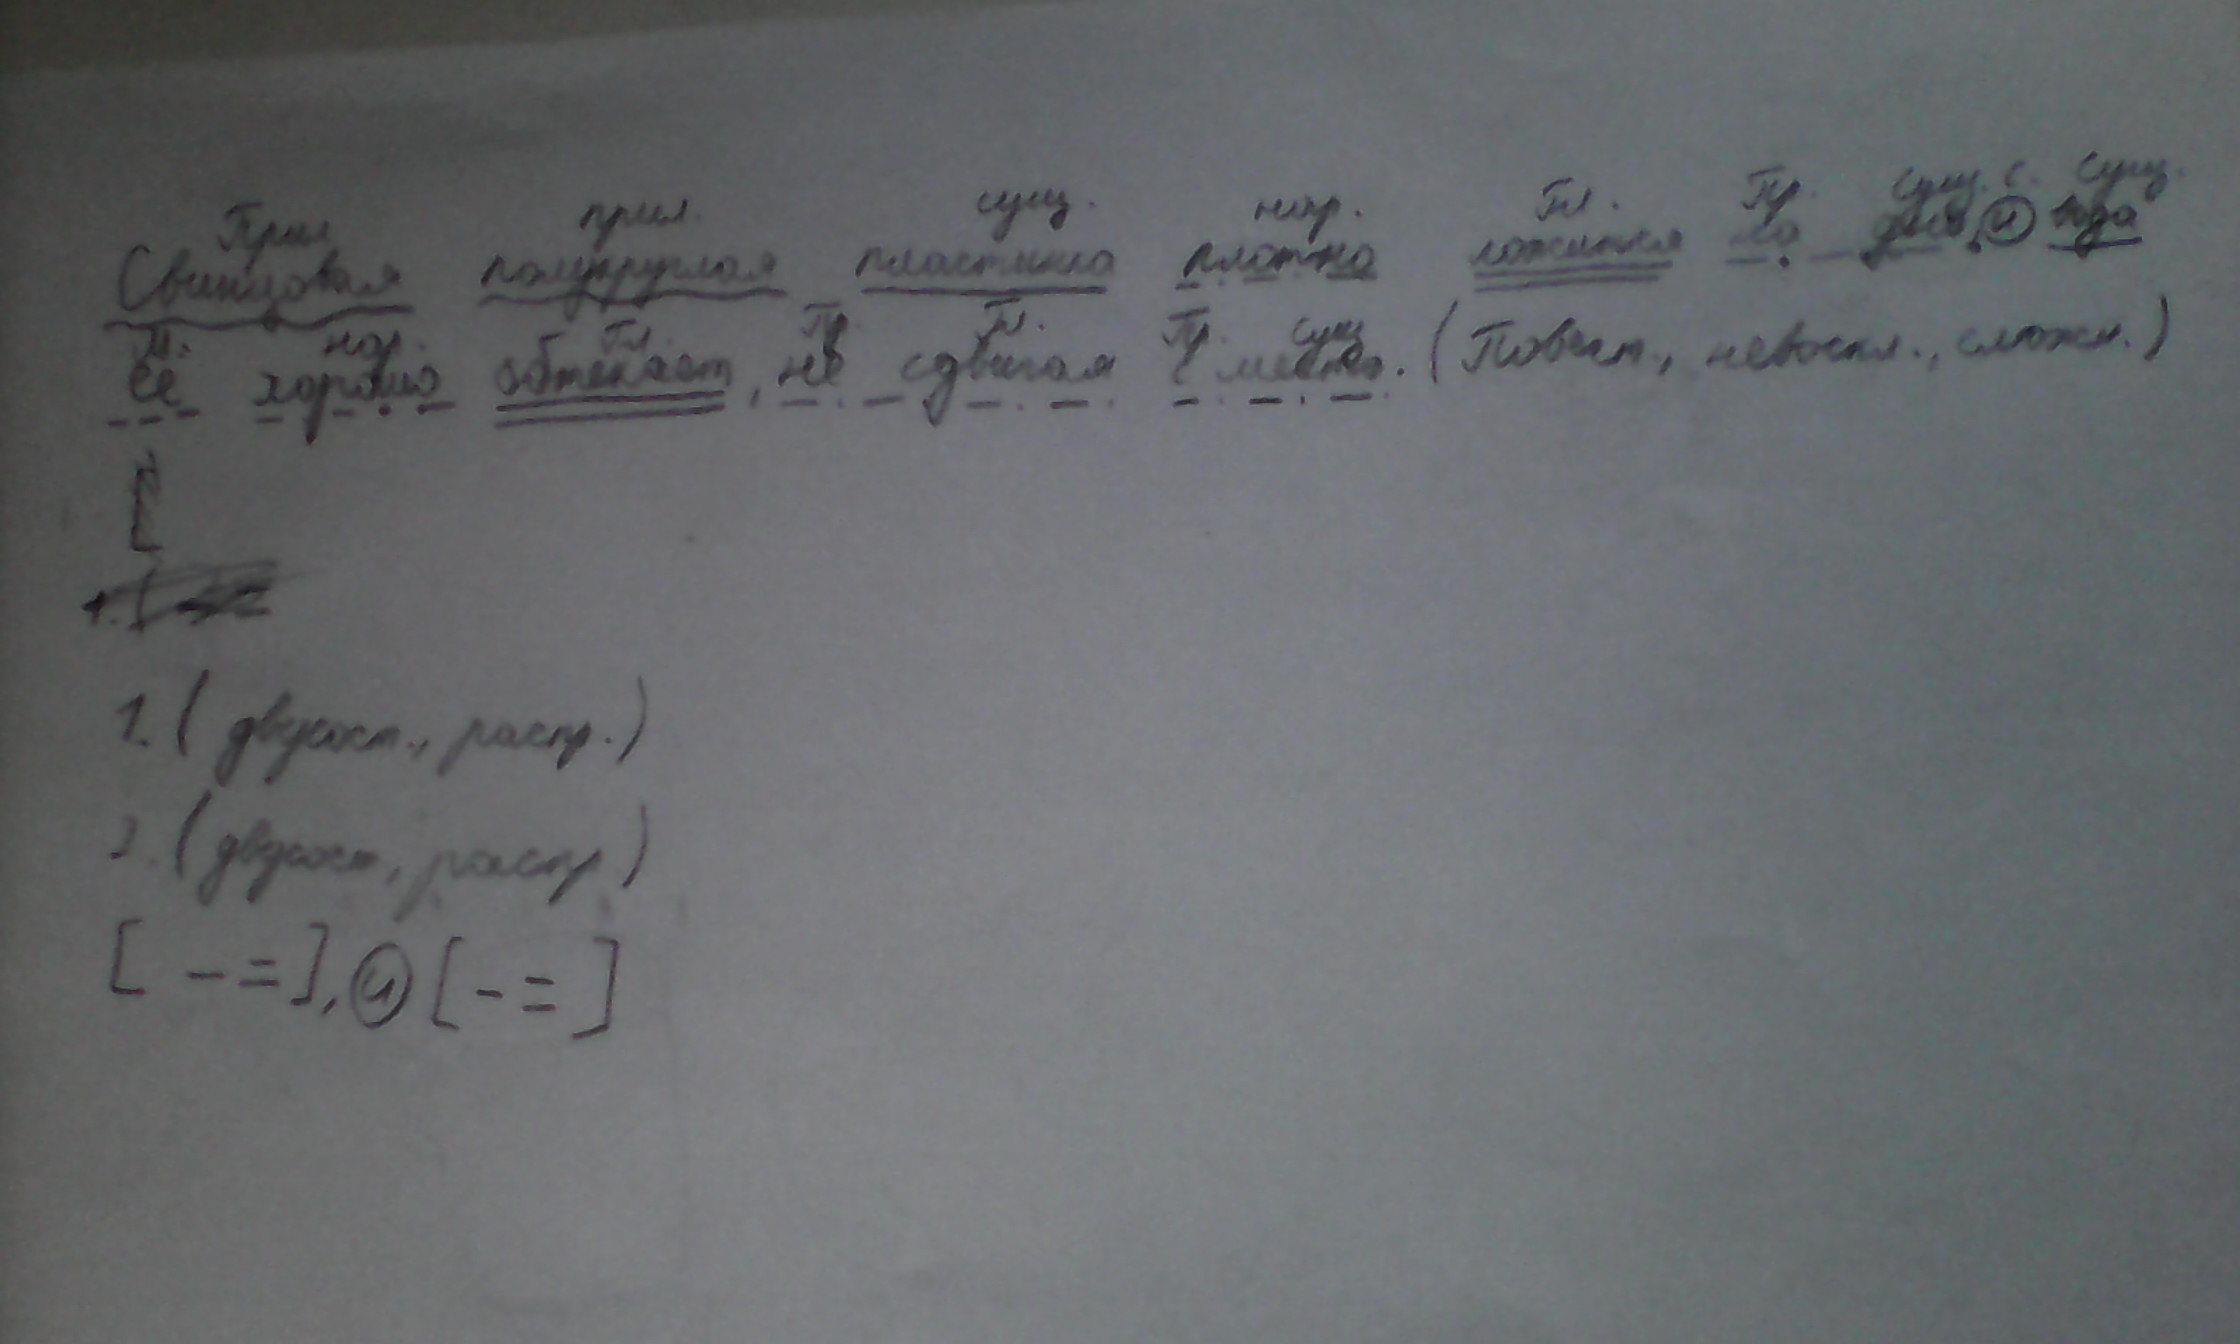 Прил прил. сущ. нар. Гл. Пр. сущ. с. сущ.
Свинцовая полукруглая пластинка плотно ложится на дно, и вода
М. нар. Гл. Пр. Гл. Пр. сущ
её хорошо обтекает, не сдвигая с места. (Повест., невоскл., сложн.)
[
1. [
1. (двусост., распр.)
2. (двусост., распр)
[ - = ], и [ - = ]